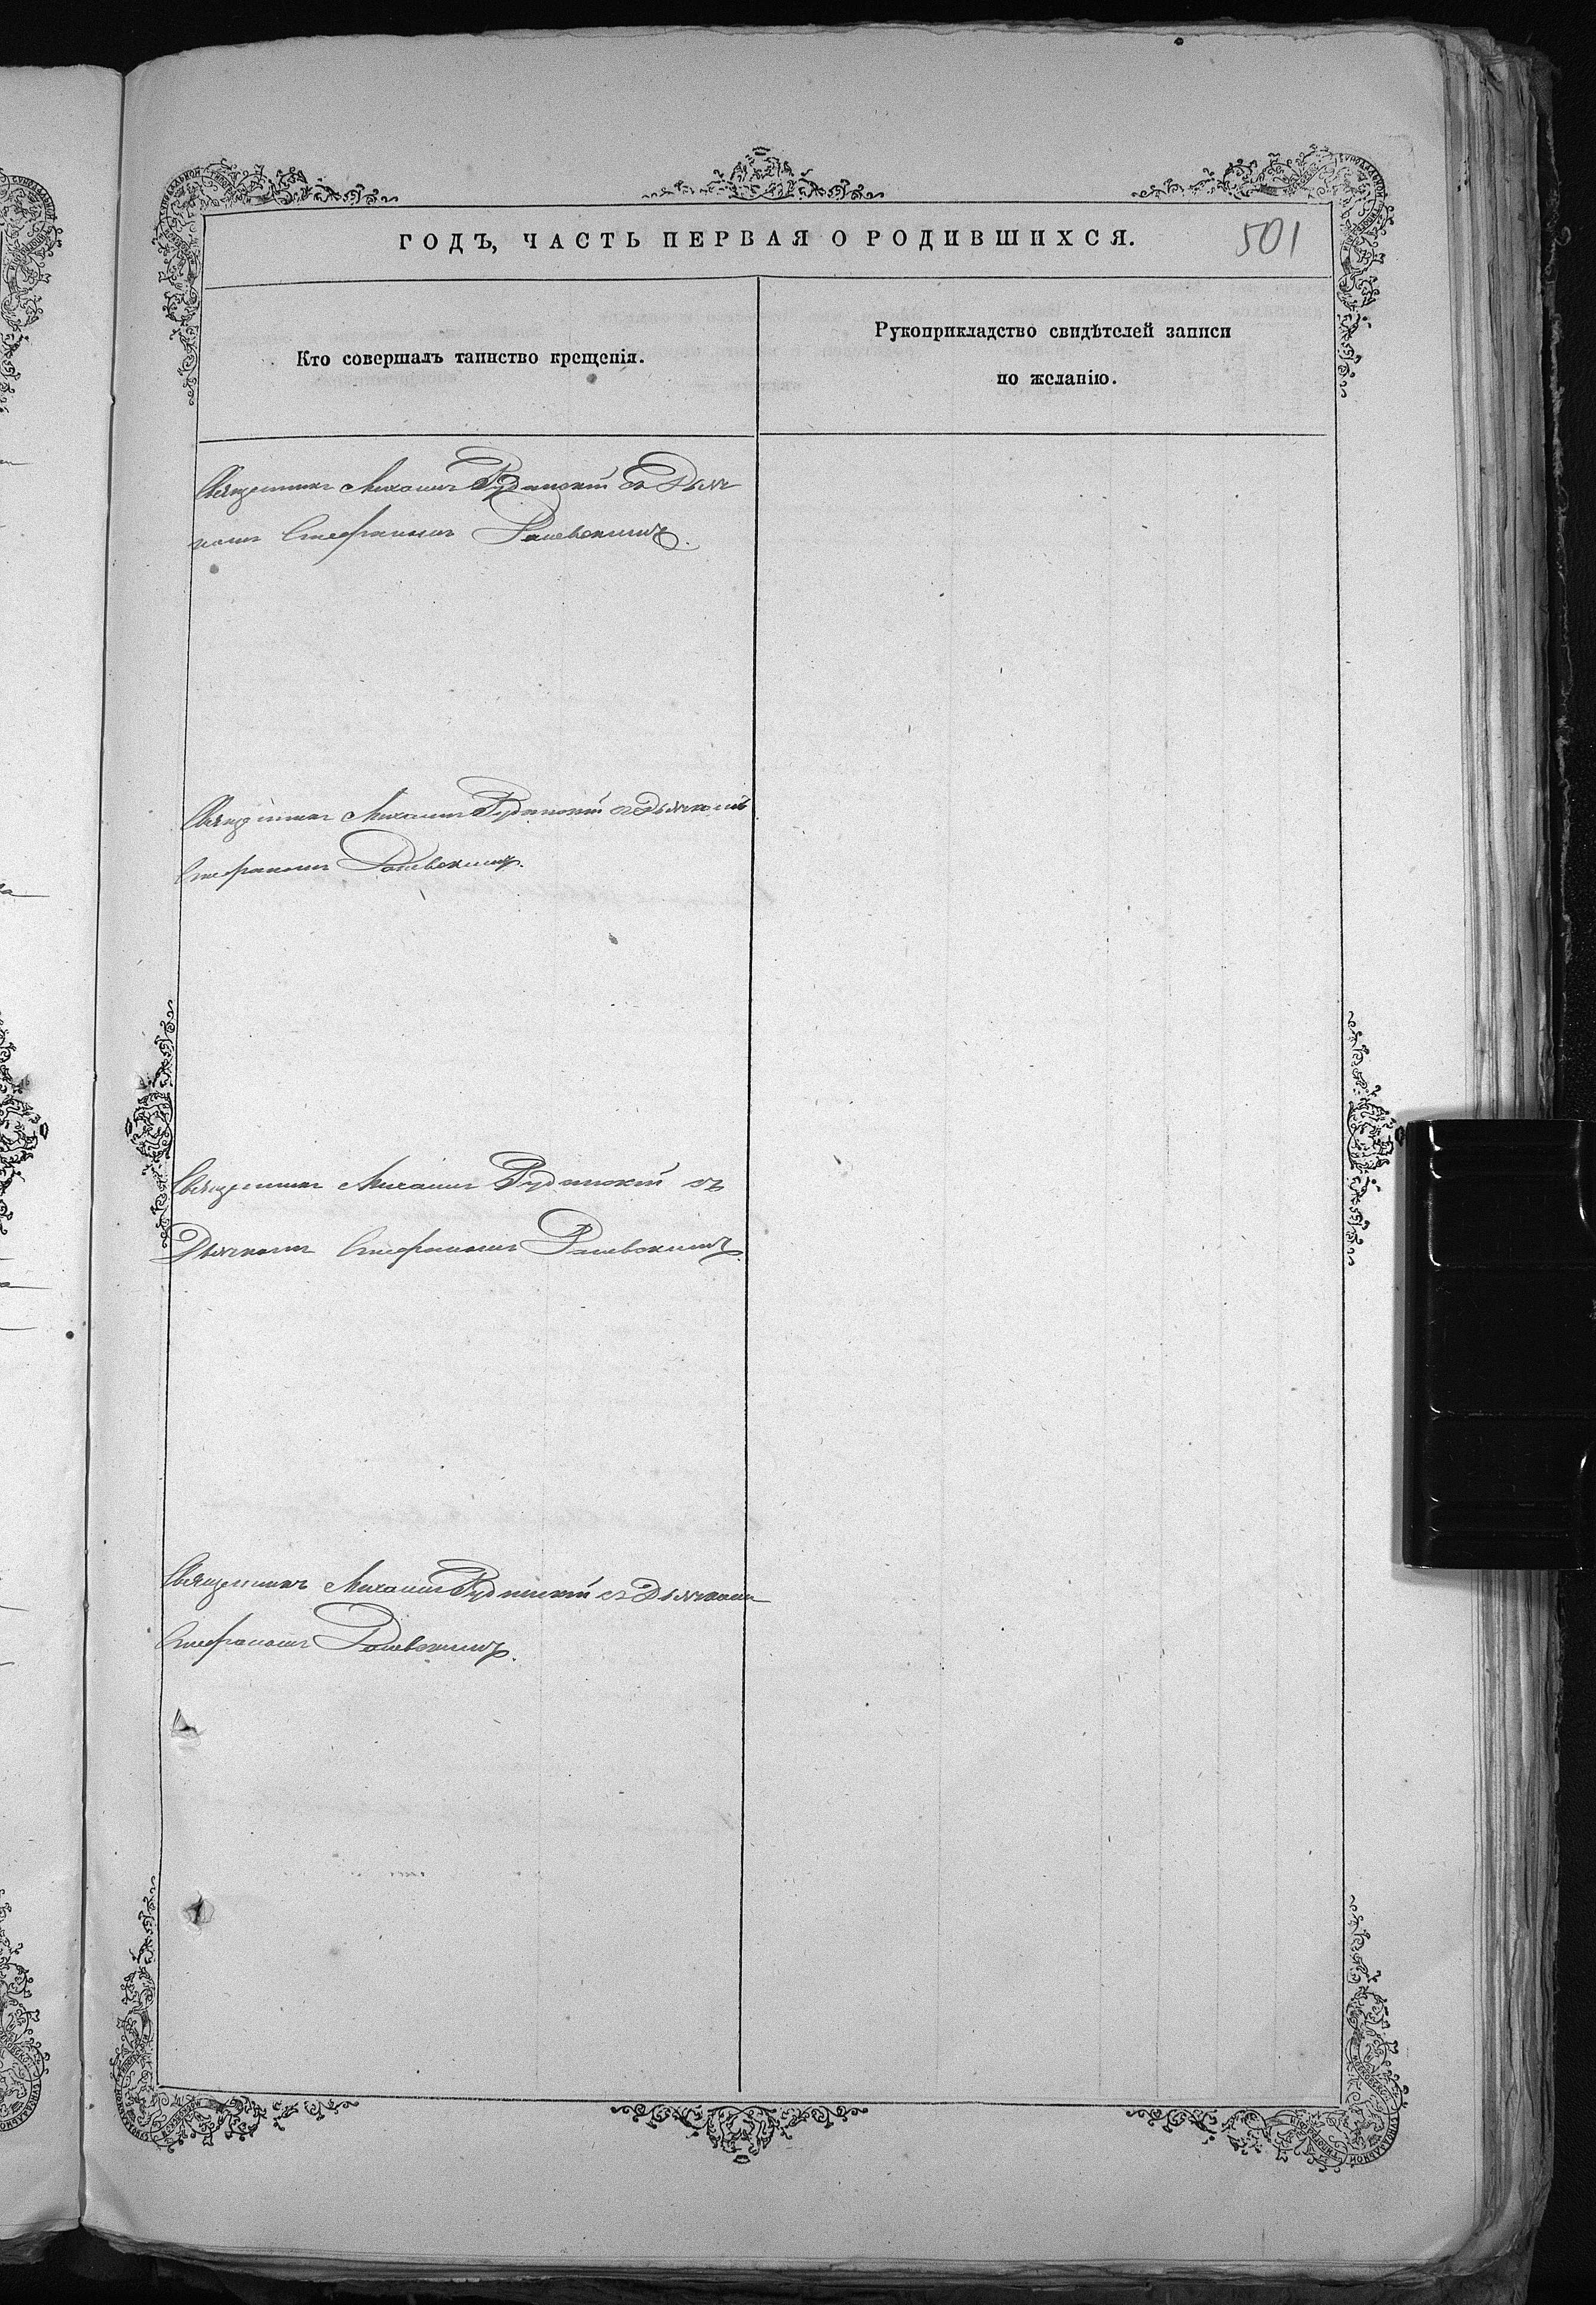 ГОДЪ, ЧАСТЬ ПЕРВАЯ О РОДИВШИХСЯ.
501
Кто совершалъ таинство крещенія.
Рукоприкладство свидѣтелей записи
по желанію.
Священникъ Михаилъ Рудинскій съ Дьяч
комъ Стефаномъ Раевскимъ.
Священникъ Михаилъ Рудинскій съ Дьячкомъ
Стефаномъ Раевскимъ.
Священникъ Михаилъ Рудинскій съ
Дьячкомъ Стефаномъ Раевскимъ.
Священникъ Михаилъ Рудинскій съ Дьячкомъ
Стефаномъ Раевскимъ.